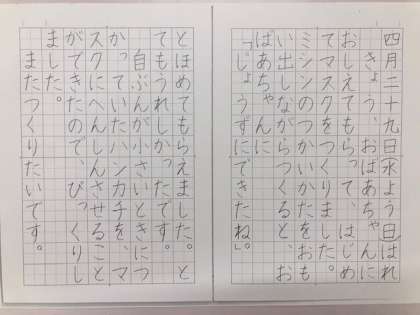 四月二十九日(水よう日)はれ
きょう、おばあちゃんに
おしえてもらって、はじめ
てマスクをつくりました。
ミシンのつかいかたをおも
い出しながらつくると、お
ばあちゃんに
「じょうずにできたね」。
とほめてもらえました。と
てもうれしかったです。
自ぶんが小さいときにつ
かっていたハンカチを、マ
スクにへんしんさせること
ができたので、びっくりし
ました。
またつくりたいです。